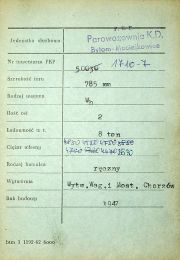 P.K.P.
Jednostka służbowa
Parowozownia K.D.
Bytom-Maciejkowice
Nr inwentarza PKP
1710-7
Szerokość toru
785 mm
Rodzaj wagonu
Ilość osi
2
Ładowność w t.
8 ton
Ciężar własny
Rodzaj hamulca
ręczny
Wytwórnia
Wytw.Wag.i Most. Chorzów
Rok budowy
1947